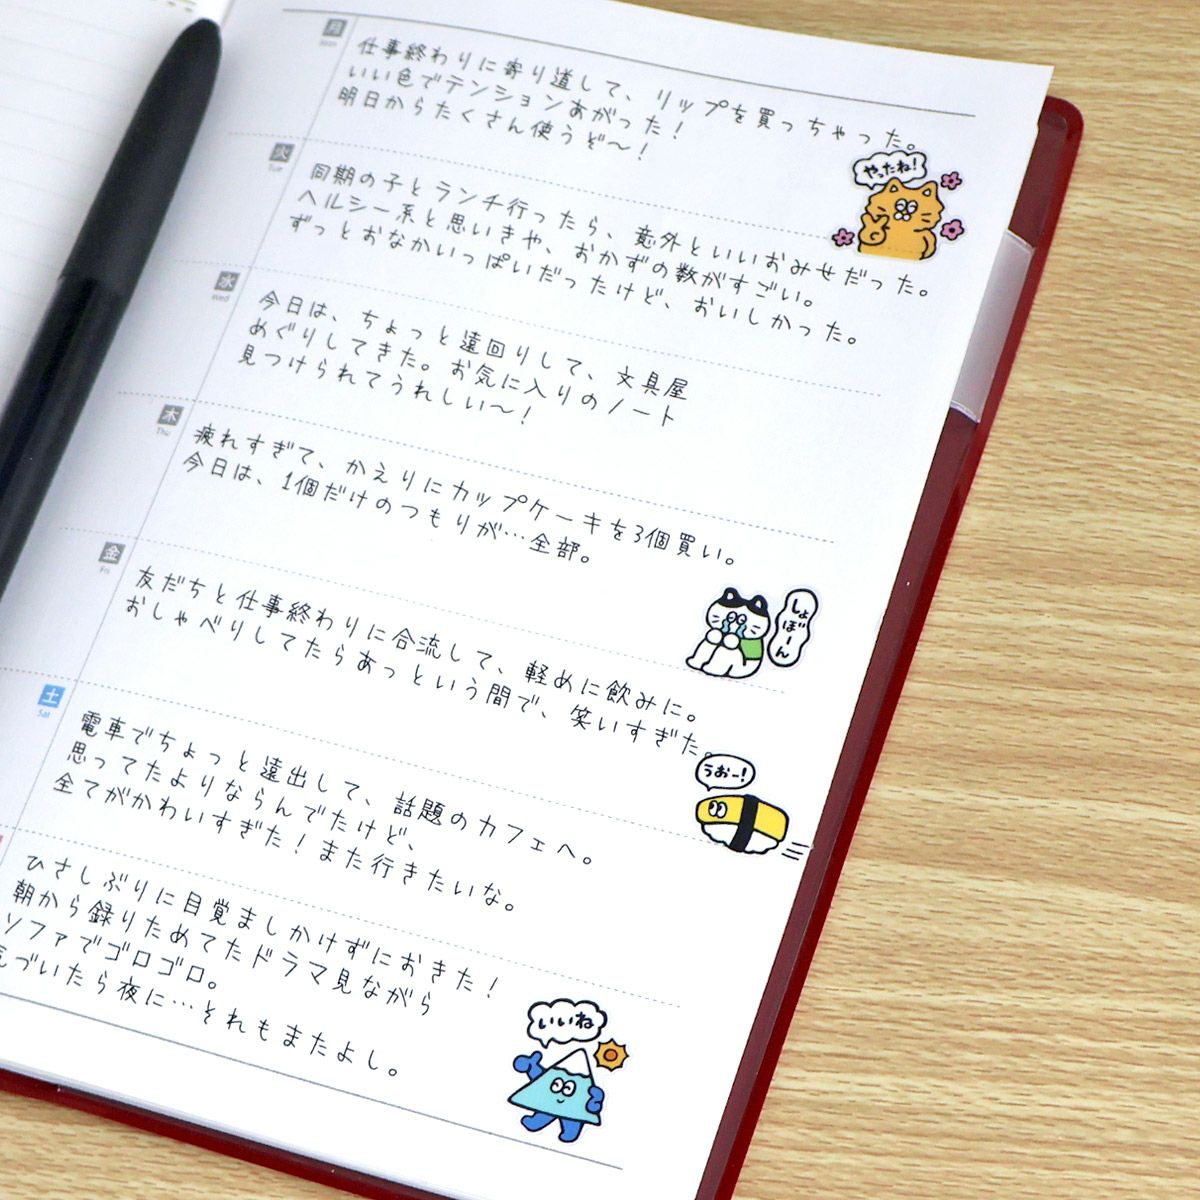 月
Mon
仕事終わりに寄り道して、リップを買っちゃった。
いい色でテンションあがった！
明日からたくさん使うぞ〜！
やったね！
火
Tue
同期の子とランチ行ったら、意外といいおみせだった。
ヘルシー系と思いきや、おかずの数がすごい。
ずっとおなかいっぱいだったけど、おいしかった。
水
Wed
今日は、ちょっと遠回りして、文具屋
めぐりしてきた。お気に入りのノート
見つけられてうれしい〜！
木
Thu
疲れすぎて、かえりにカップケーキを3個買い。
今日は、1個だけのつもりが…全部。
しょぼーん
金
Fri
友だちと仕事終わりに合流して、軽めに飲みに。
おしゃべりしてたらあっという間で、笑いすぎた。
うおー！
土
Sat
電車でちょっと遠出して、話題のカフェへ。
思ってたよりならんでたけど、
全てがかわいすぎた！また行きたいな。
ひさしぶりに目覚ましかけずにおきた！
朝から録りためてたドラマ見ながら
ソファでゴロゴロ。
気づいたら夜に…それもまたよし。
いいね